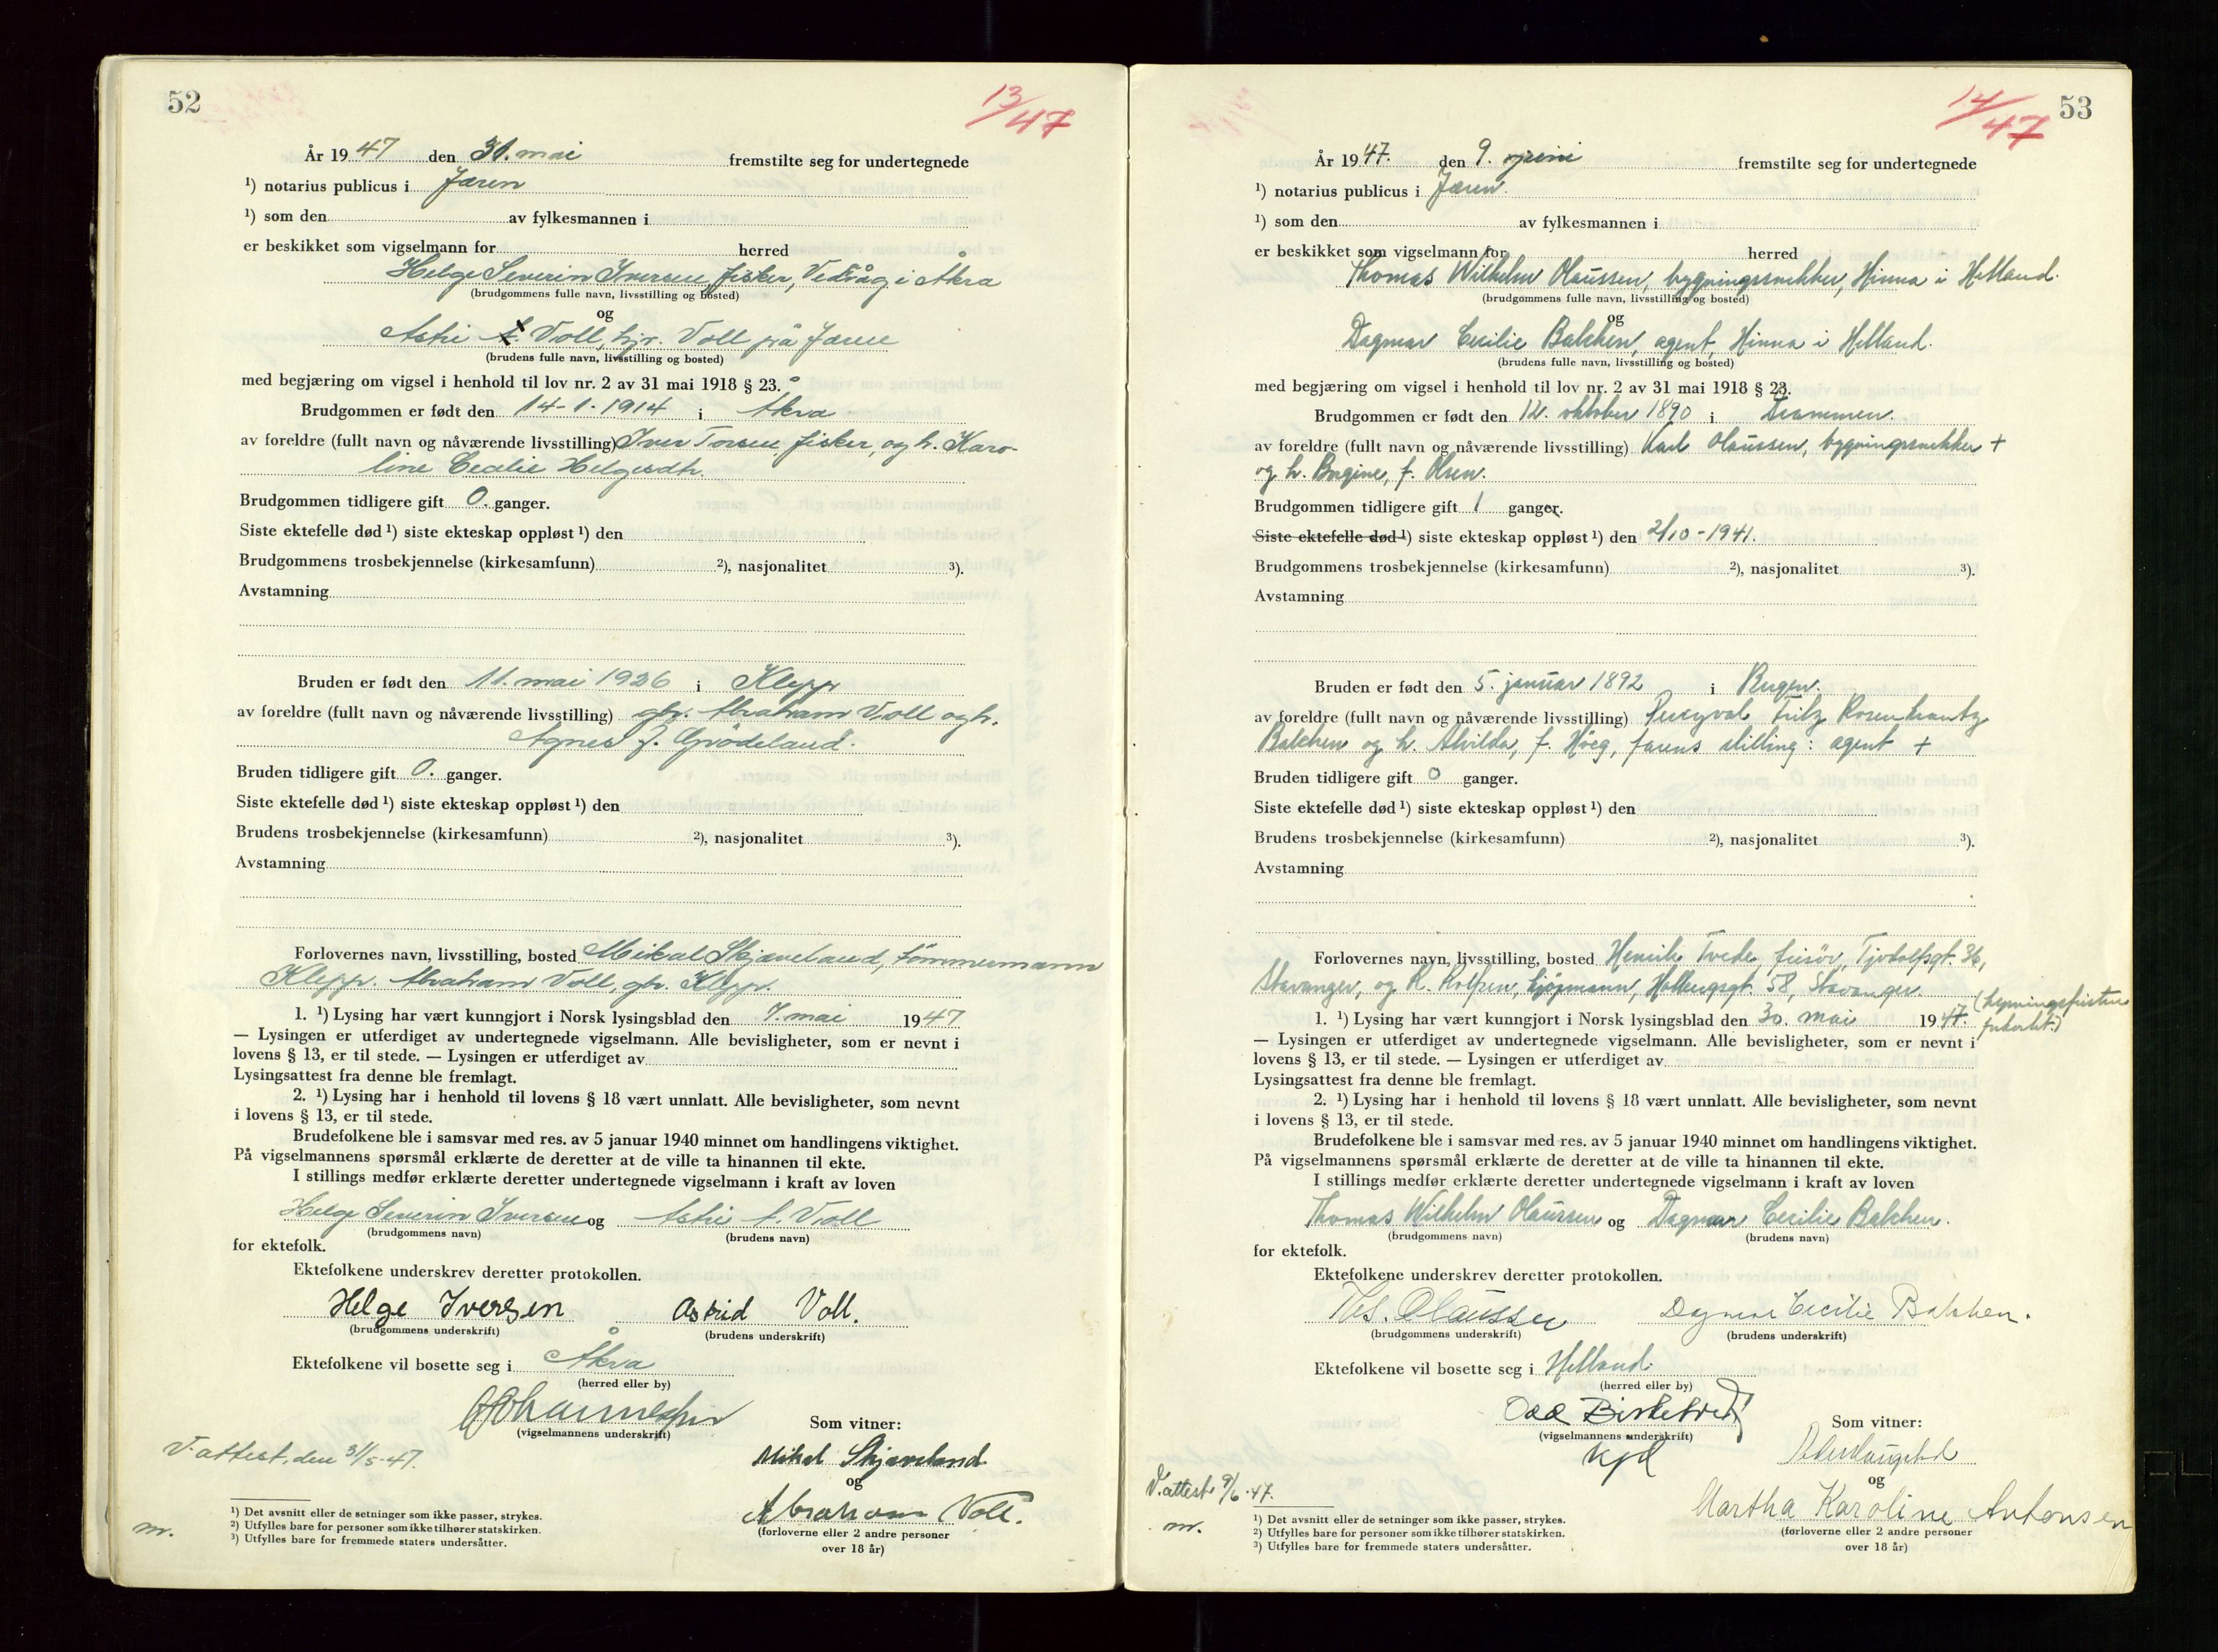 52
13/47
År 1947 den 31. mai fremstilte seg for undertegnede
¹) notarius publicus i Jæren
¹) som den av fylkesmannen i
er beskikket som vigselmann for herred
Helge Severin Iversen, fisker, Vedvåg i Åkra
(brudgommens fulle navn, livsstilling og bosted)
og
Astri A. Voll, hjv. Voll på Jæren
(brudens fulle navn, livsstilling og bosted)
med begjæring om vigsel i henhold til lov nr. 2 av 31 mai 1918 § 23.
Brudgommen er født den 14-1-1914 i Åkra
av foreldre (fullt navn og nåværende livsstilling) Iver Torsen, fisker, og h. Karo-
line Cecilie Helgesdtr.
Brudgommen tidligere gift 0. ganger.
Siste ektefelle død ¹) siste ekteskap oppløst ¹) den
Brudgommens trosbekjennelse (kirkesamfunn) ²), nasjonalitet ³).
Avstamning
Bruden er født den 11. mai 1926 i Klepp
av foreldre (fullt navn og nåværende livsstilling) gbr. Abraham Voll og h.
Agnes f. Grödeland.
Bruden tidligere gift 0. ganger.
Siste ektefelle død ¹) siste ekteskap oppløst ¹) den
Brudens trosbekjennelse (kirkesamfunn) ²), nasjonalitet ³).
Avstamning
Forlovernes navn, livsstilling, bosted Mikal Skjæveland, tømmermann
Klepp. Abraham Voll, gbr. Klepp.
1. ¹) Lysing har vært kunngjort i Norsk lysingsblad den 7. mai 1947
— Lysingen er utferdiget av undertegnede vigselmann. Alle bevisligheter, som er nevnt i
lovens § 13, er til stede. — Lysingen er utferdiget av
Lysingsattest fra denne ble fremlagt.
2. ¹) Lysing har i henhold til lovens § 18 vært unnlatt. Alle bevisligheter, som nevnt
i lovens § 13, er til stede.
Brudefolkene ble i samsvar med res. av 5 januar 1940 minnet om handlingens viktighet.
På vigselmannens spørsmål erklærte de deretter at de ville ta hinannen til ekte.
I stillings medfør erklærte deretter undertegnede vigselmann i kraft av loven
Helge Severin Iversen og Astri A. Voll
(brudgommens navn) (brudens navn)
for ektefolk.
Ektefolkene underskrev deretter protokollen.
Helge Iversen Astrid Voll.
(brudgommens underskrift) (brudens underskrift)
Ektefolkene vil bosette seg i Åkra
(herred eller by)
(vigselmannens underskrift)
Som vitner:
V. attest. den 31/5-47.
Mikal Skjæveland
og
Abraham Voll.
(forloverne eller 2 andre personer
over 18 år)
m.
¹) Det avsnitt eller de setninger som ikke passer, strykes.
²) Utfylles bare for personer som ikke tilhører statskirken.
³) Utfylles bare for fremmede staters undersåtter.
14/47
53
År 1947. den 9. juni fremstilte seg for undertegnede
¹) notarius publicus i Jæren.
¹) som den av fylkesmannen i
er beskikket som vigselmann for herred
Thomas Wilhelm Olaussen, bygningssnekker, Hinna i Hetland.
(brudgommens fulle navn, livsstilling og bosted)
og
Dagmar Cecilie Balchen, agent, Hinna i Hetland.
(brudens fulle navn, livsstilling og bosted)
med begjæring om vigsel i henhold til lov nr. 2 av 31 mai 1918 § 23.
Brudgommen er født den 12. oktober 1890 i Drammen.
av foreldre (fullt navn og nåværende livsstilling) Karl Olaussen, bygningssnekker +
og h. Bergine, f. Olsen.
Brudgommen tidligere gift 1 ganger.
Siste ektefelle død ¹) siste ekteskap oppløst ¹) den 2/10-1941.
Brudgommens trosbekjennelse (kirkesamfunn) ²), nasjonalitet ³).
Avstamning
Bruden er født den 5. januar 1892 i Bergen.
av foreldre (fullt navn og nåværende livsstilling) Percyval Fritz Rosenkrantz
Balchen og h. Alvilda, f. Höeg, farens stilling: agent +
Bruden tidligere gift 0 ganger.
Siste ektefelle død ¹) siste ekteskap oppløst ¹) den
Brudens trosbekjennelse (kirkesamfunn) ²), nasjonalitet ³).
Avstamning
Forlovernes navn, livsstilling, bosted Henrik Tvede, frisör, Tjodolfsgt. 36,
Stavanger, og R. Rolfsen, kjøpmann, Holbergsgt. 58, Stavanger.
1. ¹) Lysing har vært kunngjort i Norsk lysingsblad den 30. mai 1947. (Lysningsfristen
— Lysingen er utferdiget av undertegnede vigselmann. Alle bevisligheter, som er nevnt i
lovens § 13, er til stede. — Lysingen er utferdiget av
Lysingsattest fra denne ble fremlagt.
2. ¹) Lysing har i henhold til lovens § 18 vært unnlatt. Alle bevisligheter, som nevnt
i lovens § 13, er til stede.
Brudefolkene ble i samsvar med res. av 5 januar 1940 minnet om handlingens viktighet.
På vigselmannens spørsmål erklærte de deretter at de ville ta hinannen til ekte.
I stillings medfør erklærte deretter undertegnede vigselmann i kraft av loven
Thomas Wilhelm Olaussen og Dagmar Cecilie Balchen.
(brudgommens navn) (brudens navn)
for ektefolk.
Ektefolkene underskrev deretter protokollen.
Ths. Olaussen Dagmar Cecilie Balchen.
(brudgommens underskrift) (brudens underskrift)
Ektefolkene vil bosette seg i Hetland.
(herred eller by)
(vigselmannens underskrift)
Kjd
Som vitner:
og
Martha Karoline Antonsen
(forloverne eller 2 andre personer
over 18 år)
V. attest 9/6-47.
m.
¹) Det avsnitt eller de setninger som ikke passer, strykes.
²) Utfylles bare for personer som ikke tilhører statskirken.
³) Utfylles bare for fremmede staters undersåtter.